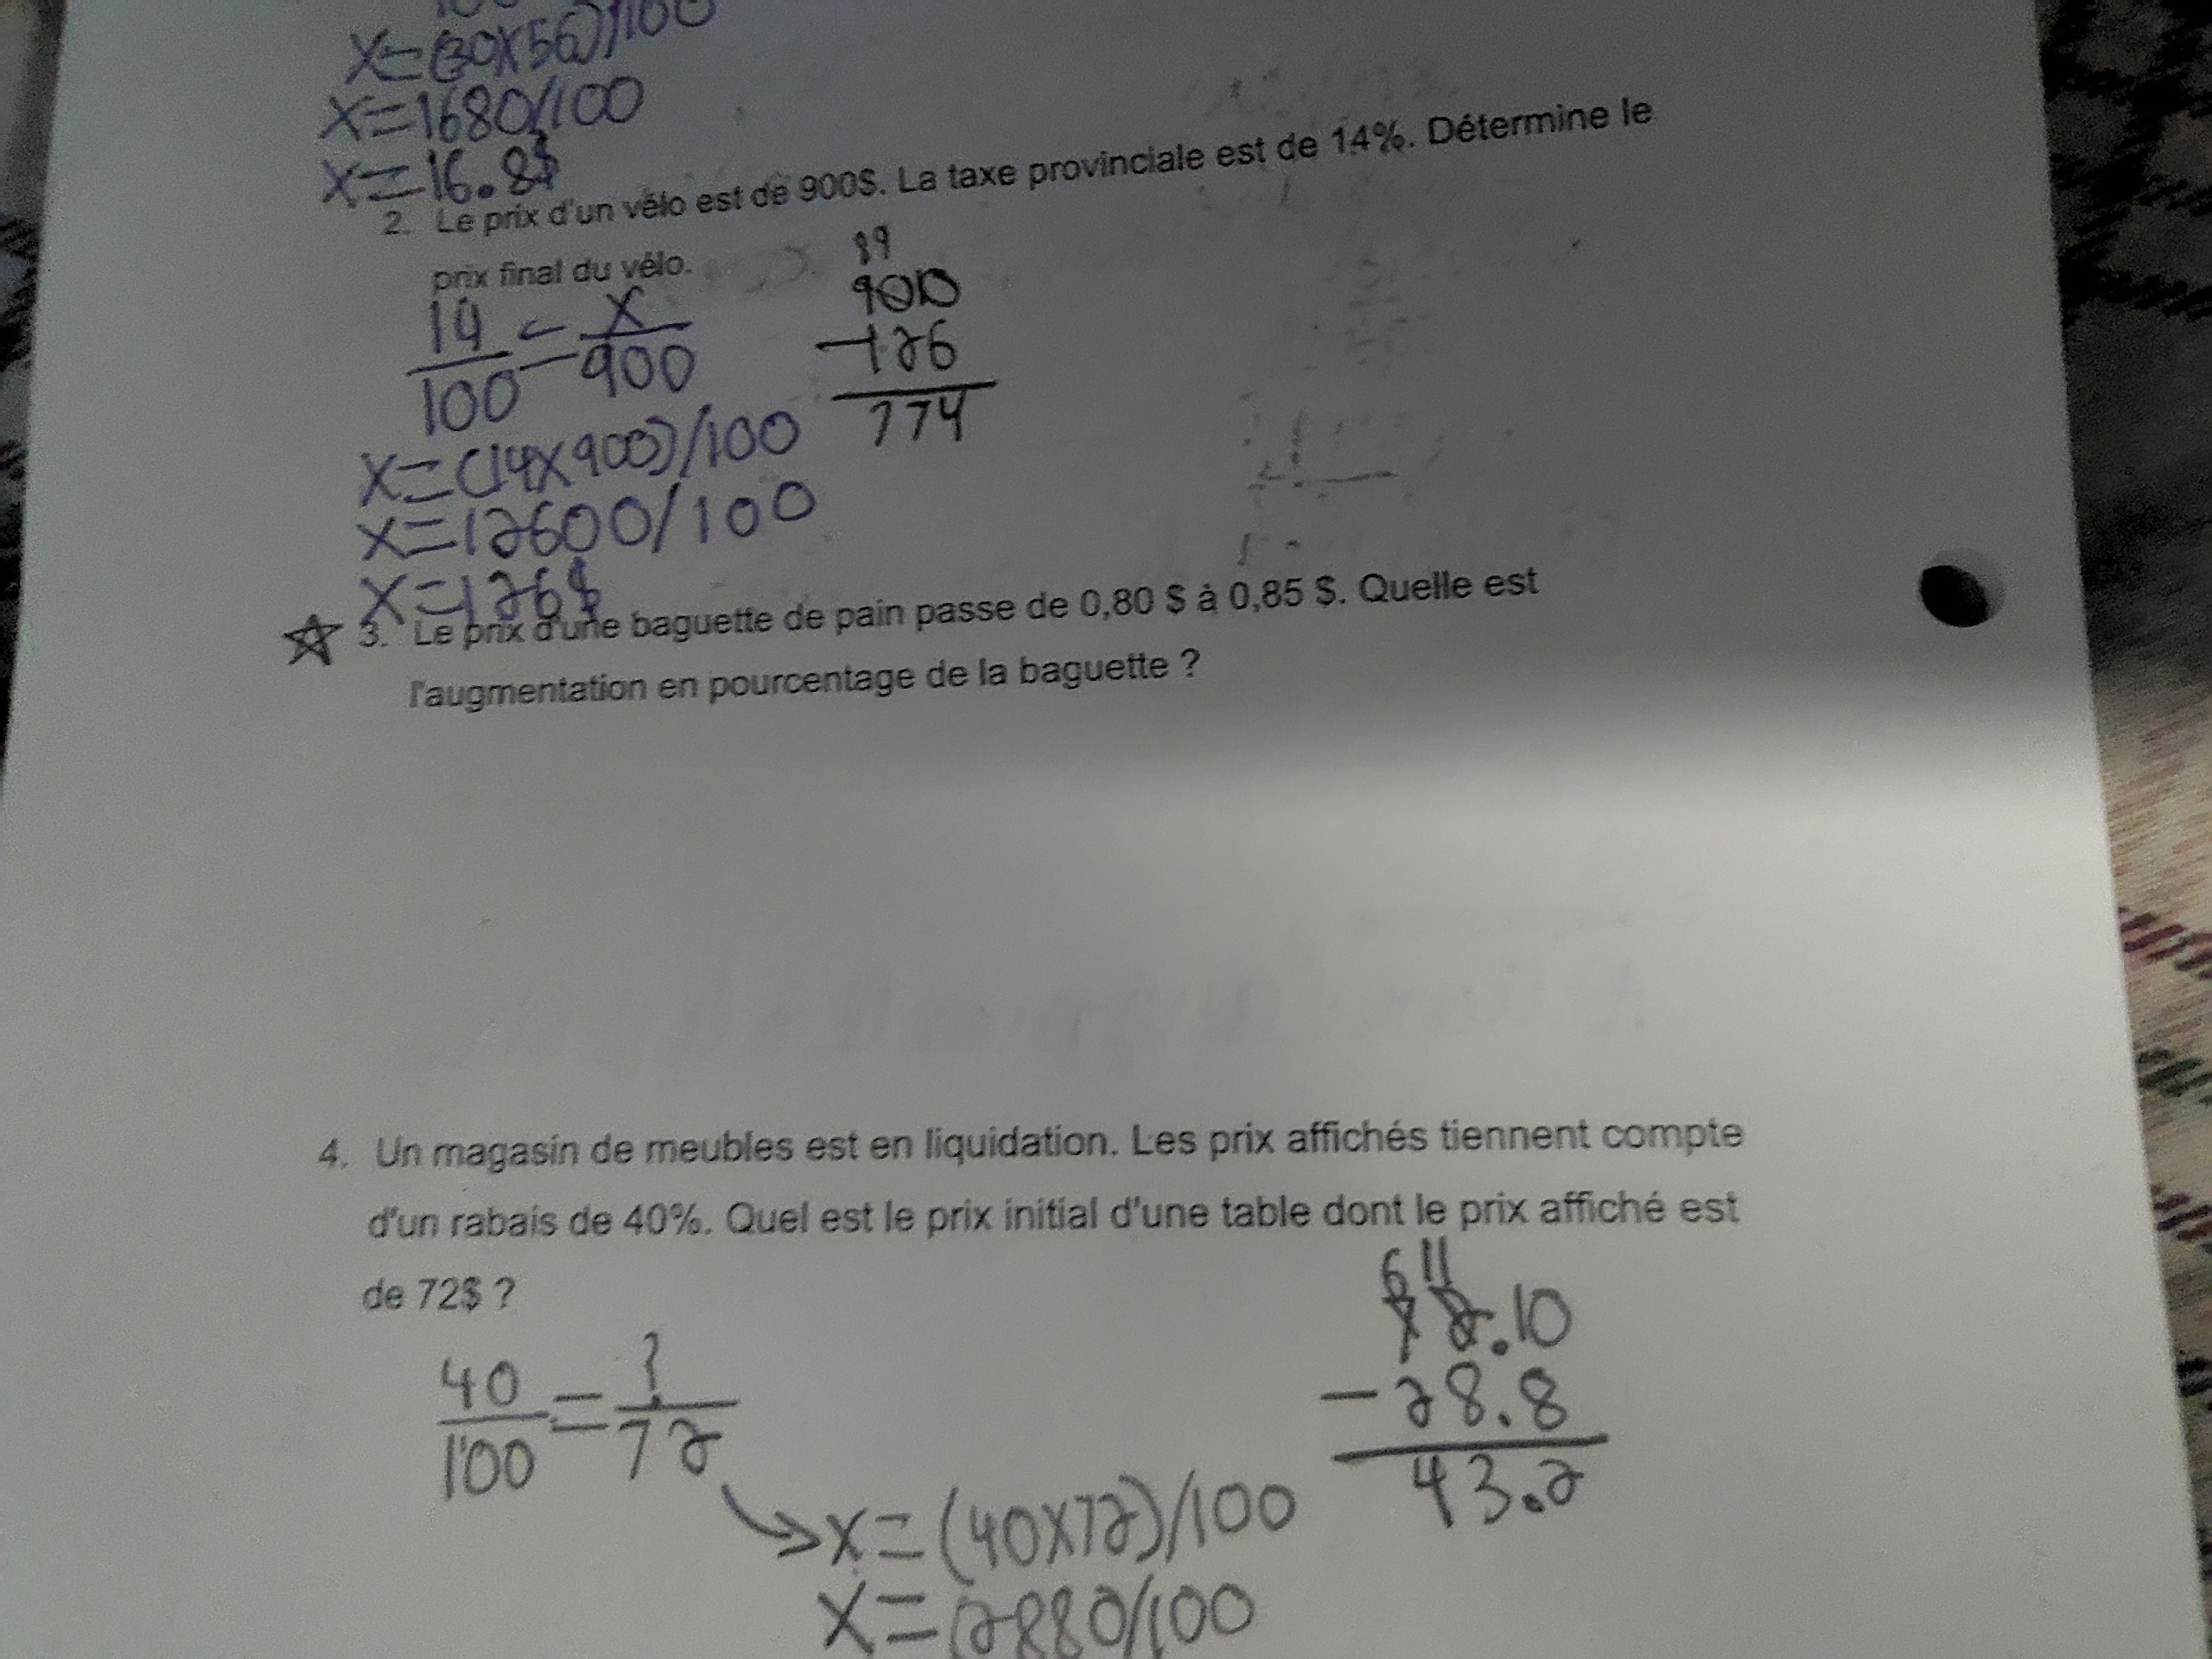 X=(30X56)/100
X=1680/100
X=16.8$
2. Le prix d'un vélo est de 900$. La taxe provinciale est de 14%. Détermine le
prix final du vélo.
14/100=X/900
89
900
-126
774
X=(14X900)/100
X=12600/100
X=126$
☆ 3. Le prix d'une baguette de pain passe de 0,80 $ à 0,85 $. Quelle est
l'augmentation en pourcentage de la baguette ?
4. Un magasin de meubles est en liquidation. Les prix affichés tiennent compte
d'un rabais de 40%. Quel est le prix initial d'une table dont le prix affiché est
de 72$ ?
40/100=?/72
6 11
72.10
-28.8
43.2
→X=(40X72)/100
X=2880/100